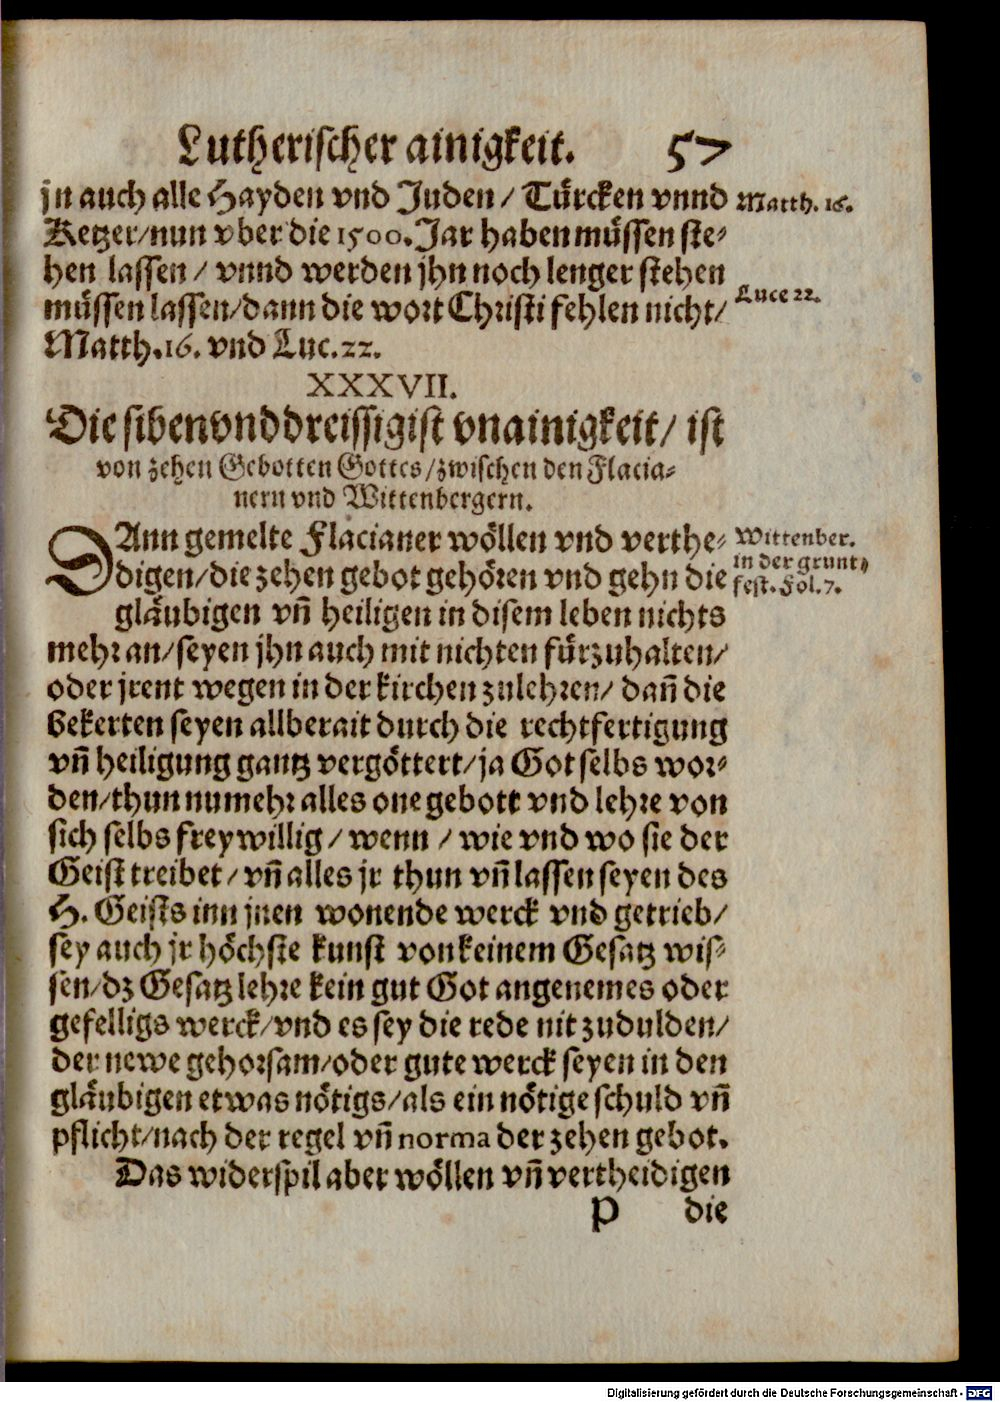 Lutherischer ainigkeit. 57
jn auch alle Hayden vnd Juden / Türcken vnnd
Ketzer/nun vber die 1500. Jar haben müssen ste-
hen lassen / vnnd werden jhn noch lenger stehen
müssen lassen/dann die wort Christi fehlen nicht/
Matth.16. vnd Luc.22.
Matth. 16.
Luce 22.
XXXVII.
Die sibenvnddreissigist vnainigkeit/ ist
von zehen Gebotten Gottes/zwischen den Flacia-
nern vnd Wittenbergern.
DAnn gemelte Flacianer wöllen vnd verthe-
digen/die zehen gebot gehören vnd gehn die
gläubigen vñ heiligen in disem leben nichts
mehr an/seyen jhn auch mit nichten fürzuhalten/
oder jrent wegen in der kirchen zulehren/ dañ die
bekerten seyen allberait durch die rechtfertigung
vñ heiligung gantz vergöttert/ja Got selbs wor-
den/thun numehr alles one gebott vnd lehre von
sich selbs freywillig / wenn / wie vnd wo sie der
Geist treibet/ vñ alles jr thun vñ lassen seyen des
H. Geists inn jnen wonende werck vnd getrieb/
sey auch jr höchste kunst von keinem Gesatz wis-
sen/dz Gesatz lehre kein gut Got angenemes oder
gefelligs werck/vnd es sey die rede nit zudulden/
der newe gehorsam/oder gute werck seyen in den
gläubigen etwas nötigs/als ein nötige schuld vñ
pflicht/nach der regel vñ norma der zehen gebot.
Das widerspil aber wöllen vñ vertheidigen
Wittenber.
in der grunt-
fest. Fol. 7.
P die
Digitalisierung gefördert durch die Deutsche Forschungsgemeinschaft - DFG